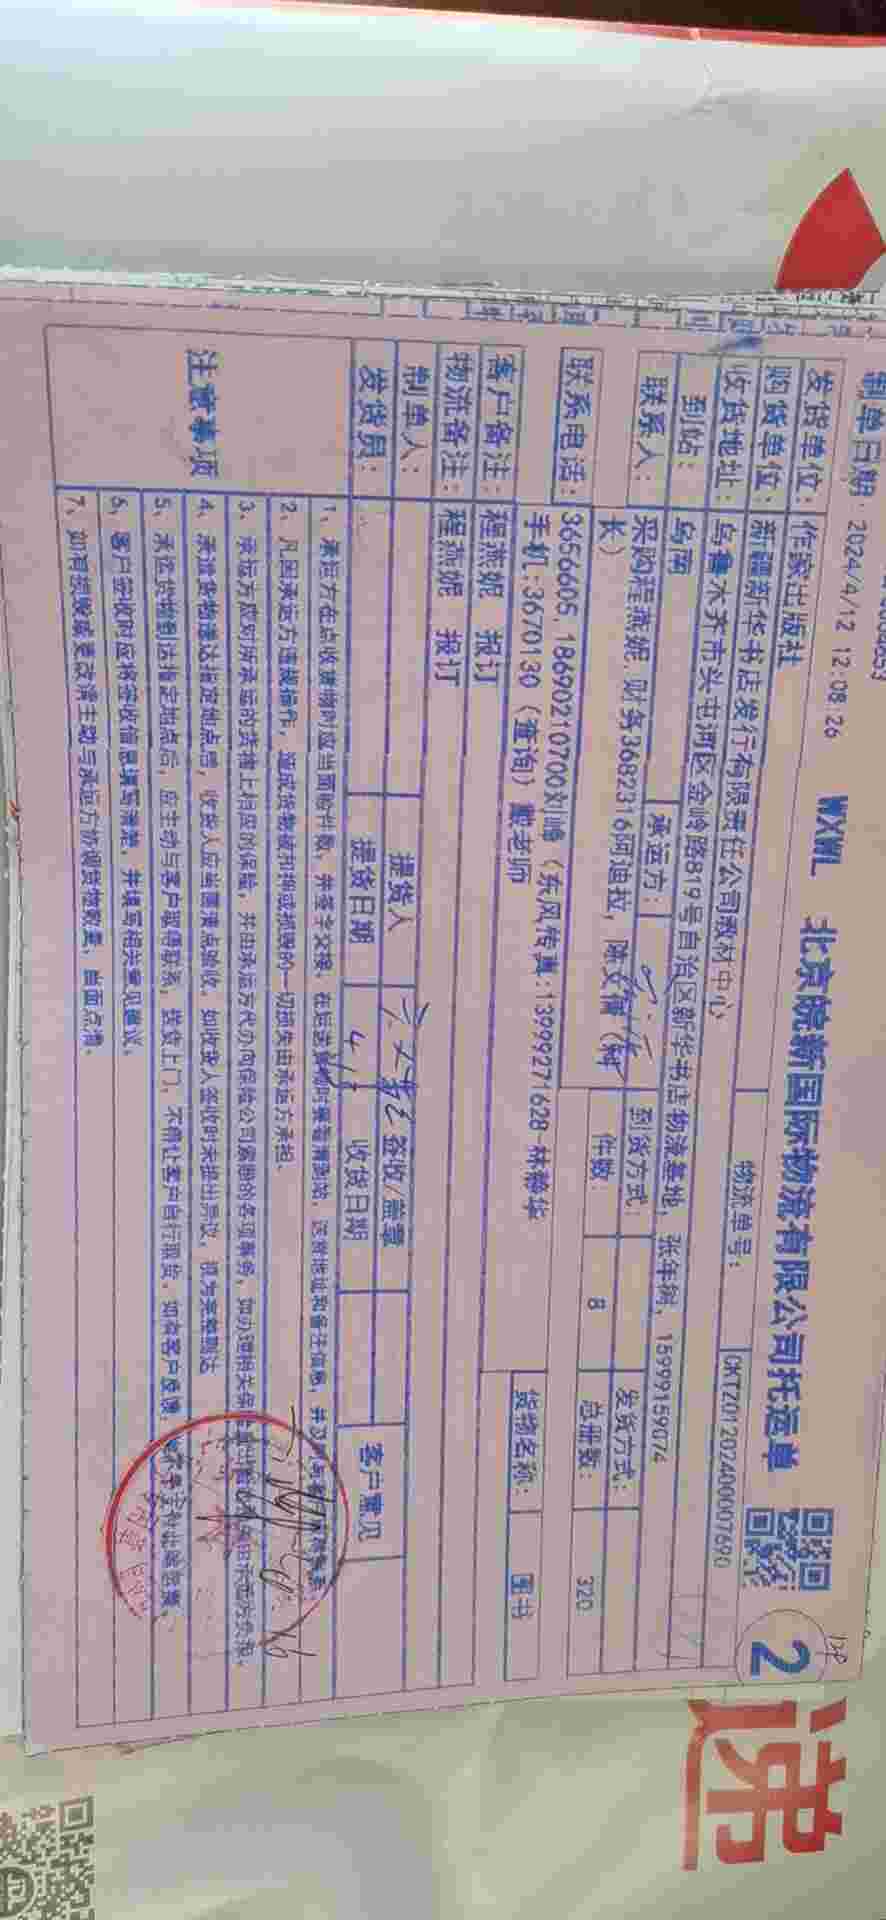 制单日期：2024/4/12 12:08:26 WXWL 北京皖新国际物流有限公司托运单 2
发货单位：作家出版社 物流单号： CKTZ01202400007690
购货单位：新疆新华书店发行有限责任公司教材中心
收货地址：乌鲁木齐市头屯河区金岭路819号自治区新华书店物流基地，张年树，15999159074
到站：乌西 承运方： 到货方式： 发货方式：
联系人：采购程燕妮，财务3682316阿迪拉，陈文倩（科长） 件数： 8 总册数： 320
联系电话：3656605，18690210700刘峰（东风传真:13999271628-林穆华
手机:3670130（查询）戴老师 货物名称： 图书
客户备注：程燕妮 报订
物流备注：程燕妮 报订
制单人： 提货人 签收/盖章 客户意见
发货员： 提货日期 收货日期
注意事项
1、承运方在点收货物时应当面验件数，并签字交接，在运送货物时要看清到站、送货地址和备注信息，并及时与客户
2、凡因承运方违规操作，造成货物被扣押或损毁的一切损失由承运方承担。
3、承运方应对所承运的货物上相应的保险，并由承运方代办向保险公司索赔的各项事务，如办理相关保
4、承运货物送达指定地点后，收货人应当面清点验收，如收货人签收时未提出异议，视为完整到达
5、承运货物到达指定地点后，应主动与客户取得联系，送货上门，不得让客户自行取货，如有客户反馈，
6、客户签收时应将签收信息填写清楚，并填写相关意见建议。
7、如有损毁或更改请主动与承运方协商货物数量，当面点清。
递